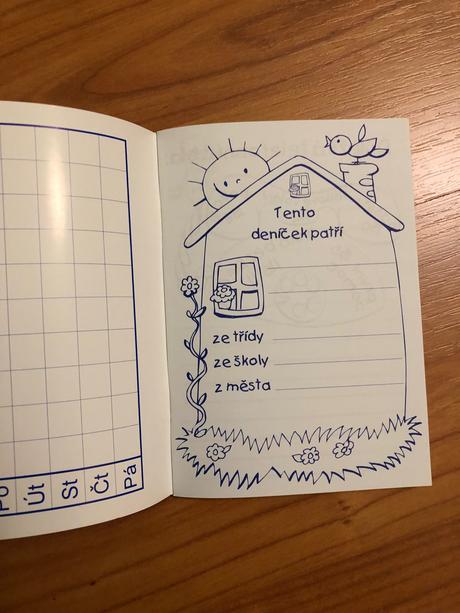 Po
Út
St
Čt
Pá
Tento
deníček patří
ze třídy
ze školy
z města